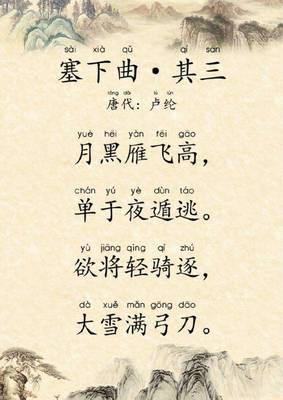 sài xià qǔ qí sān
塞下曲·其三
táng dài lú lún
唐代：卢纶
yuè hēi yàn fēi gāo
月黑雁飞高，
chán yú yè dùn táo
单于夜遁逃。
yù jiāng qīng qí zhú
欲将轻骑逐，
dà xuě mǎn gōng dāo
大雪满弓刀。